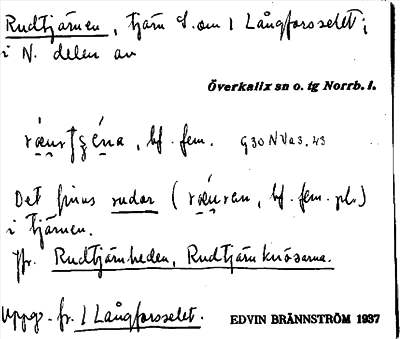 Rudtjärnen, tjärn S. om 1 Långforsselet;
i N. delen av
Överkalix sn o. tg Norrb. l.
bf. fem. G30 NV a3, 43
Det finns rudor (bf. fem. pl.)
i tjärnen.
Jfr. Rudtjärnheden, Rudtjärnknösarna.
Uppg. fr. 1 Långforsselet. EDVIN BRÄNNSTRÖM 1937